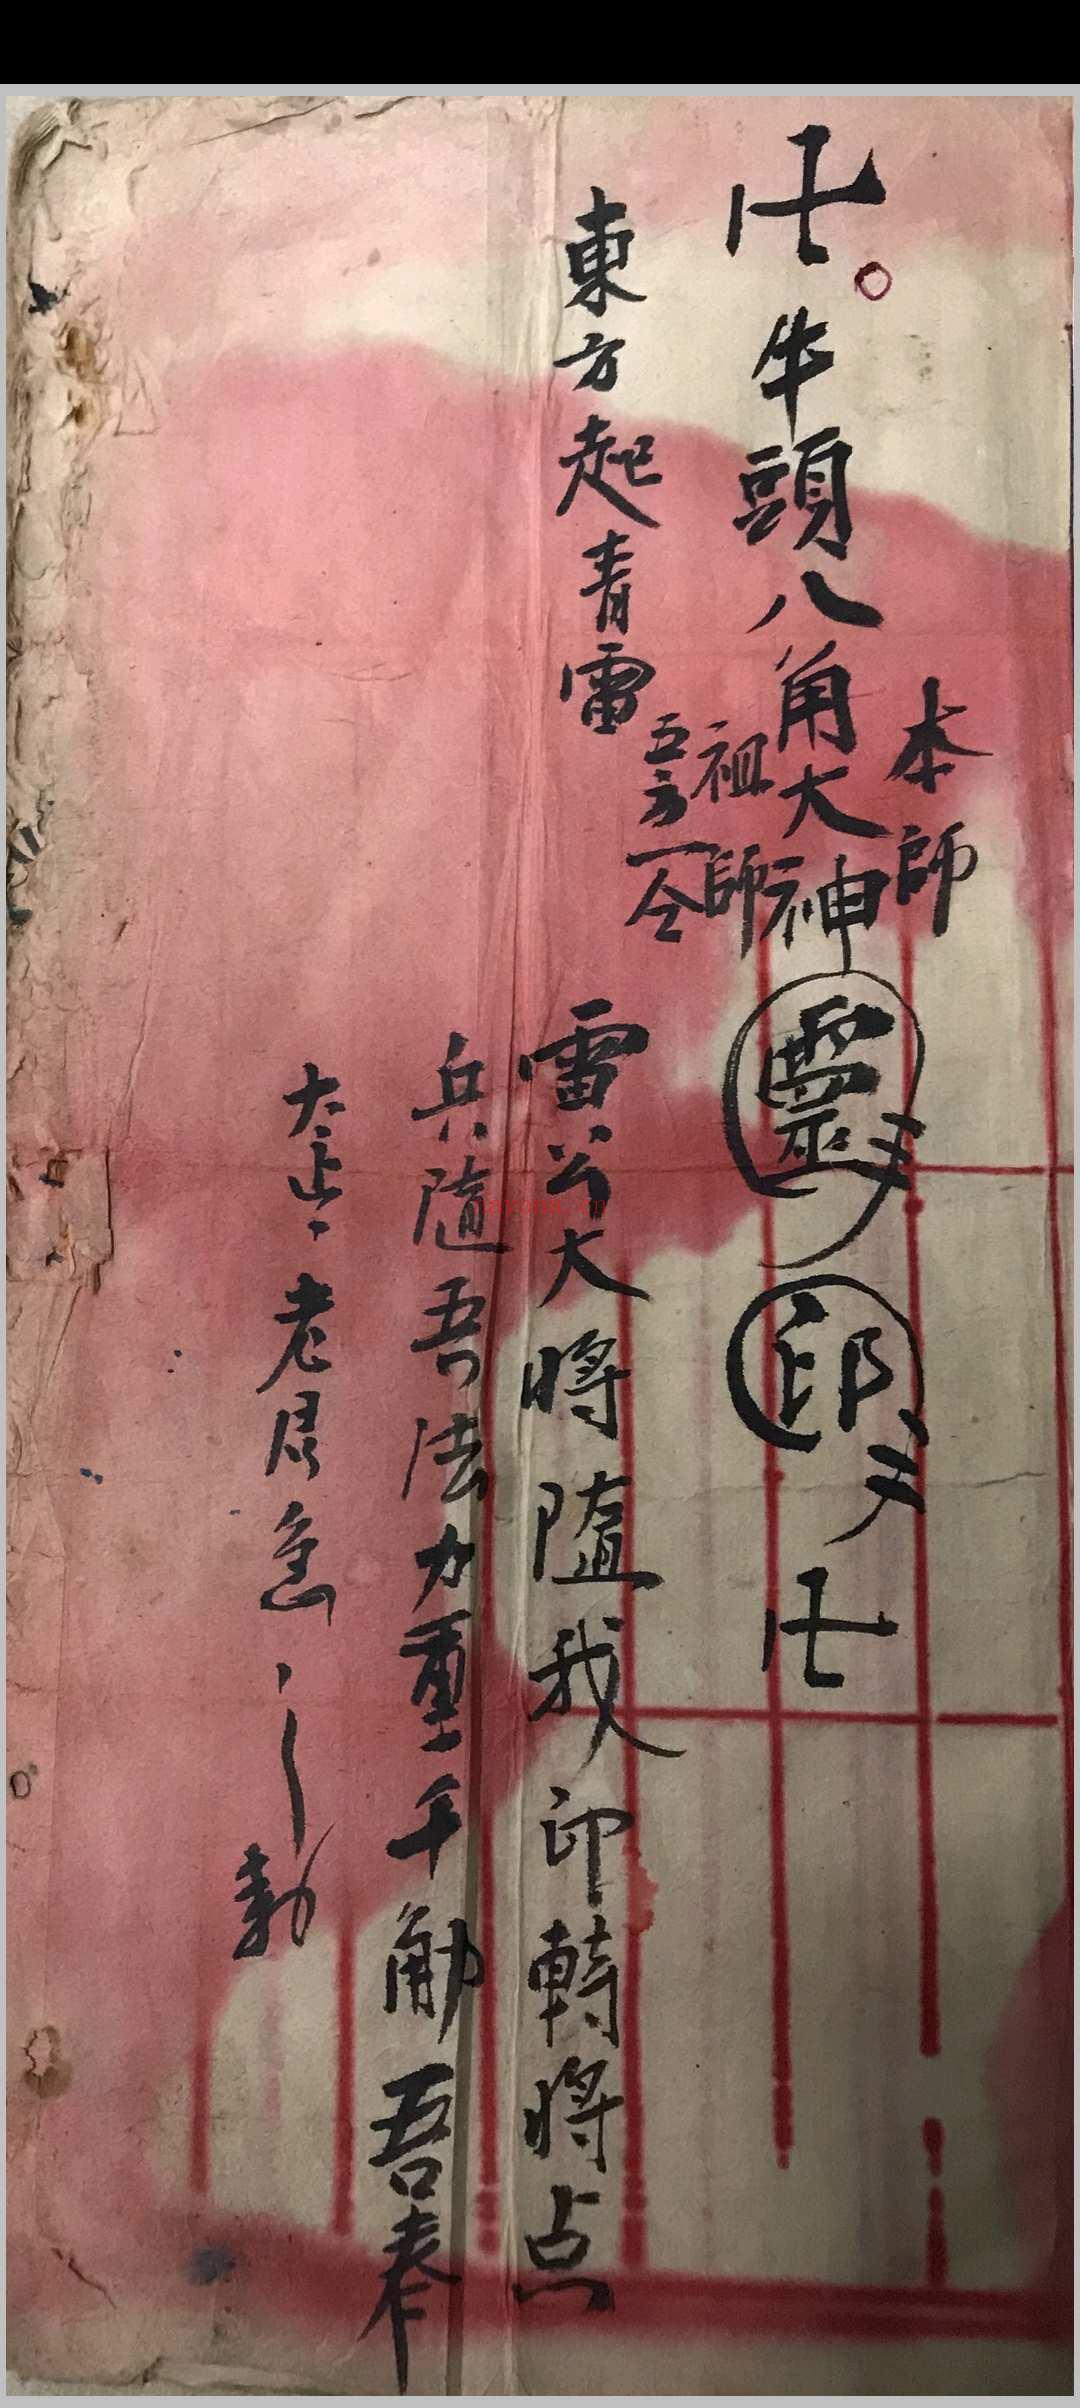 卐
牛頭八角大神靈印卐
本師
祖師
五方一仝
東方起青雷
雷公大將隨我印轉將点
兵隨吾法力重千觔吾奉
太上老君急
勅